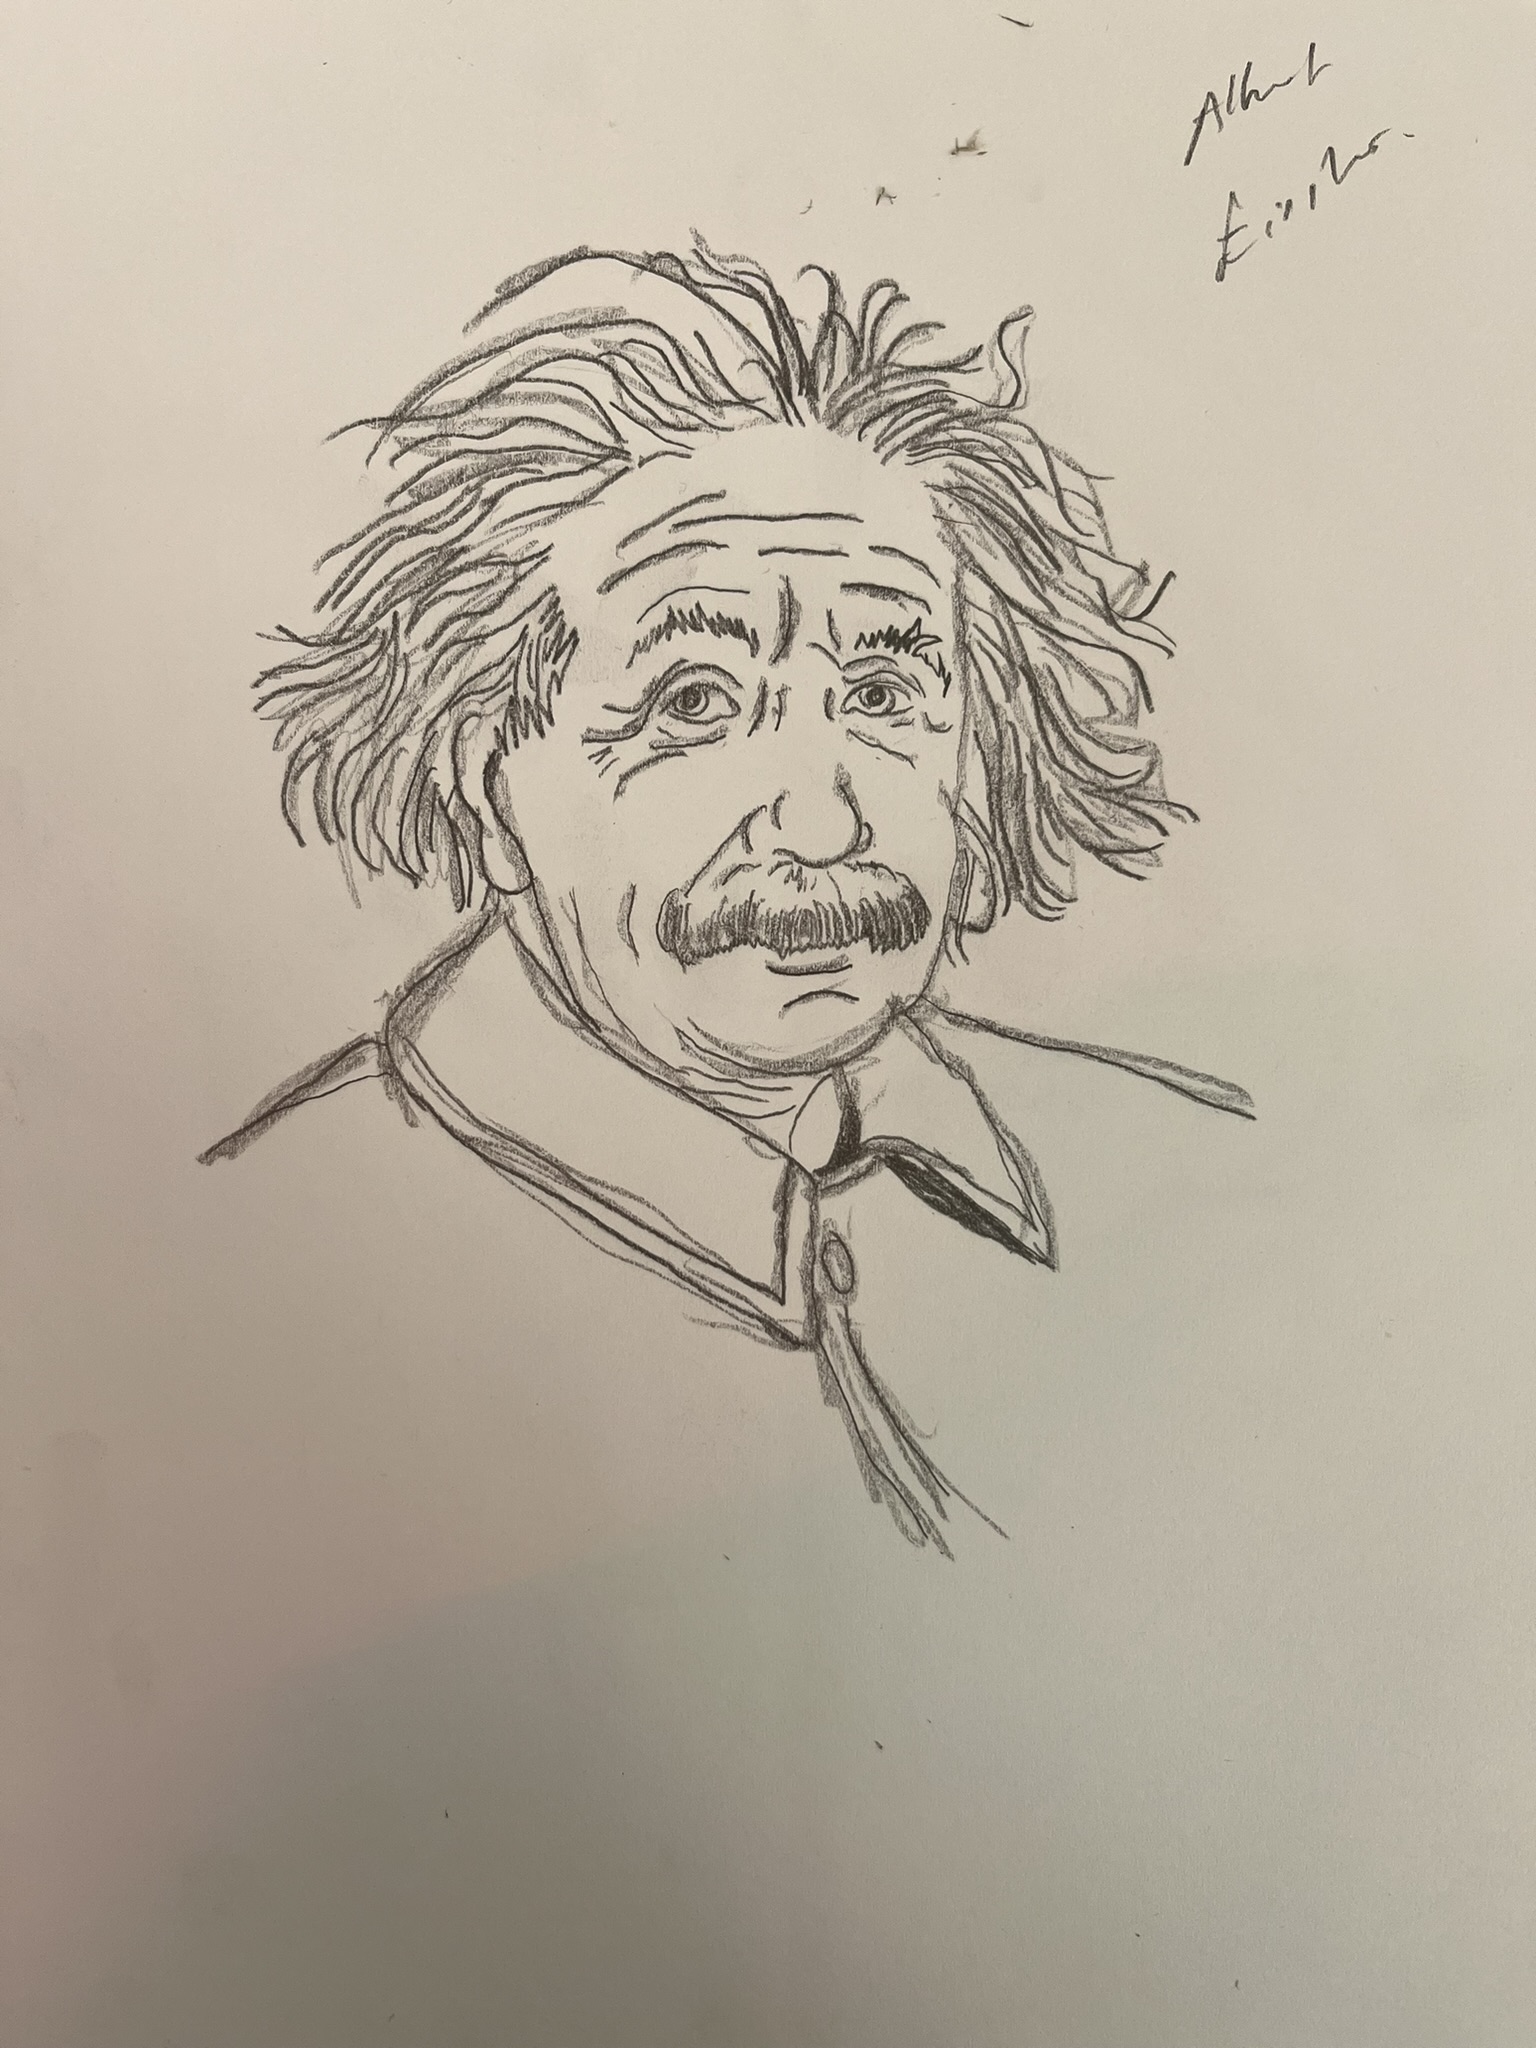 Albert
Einstein.